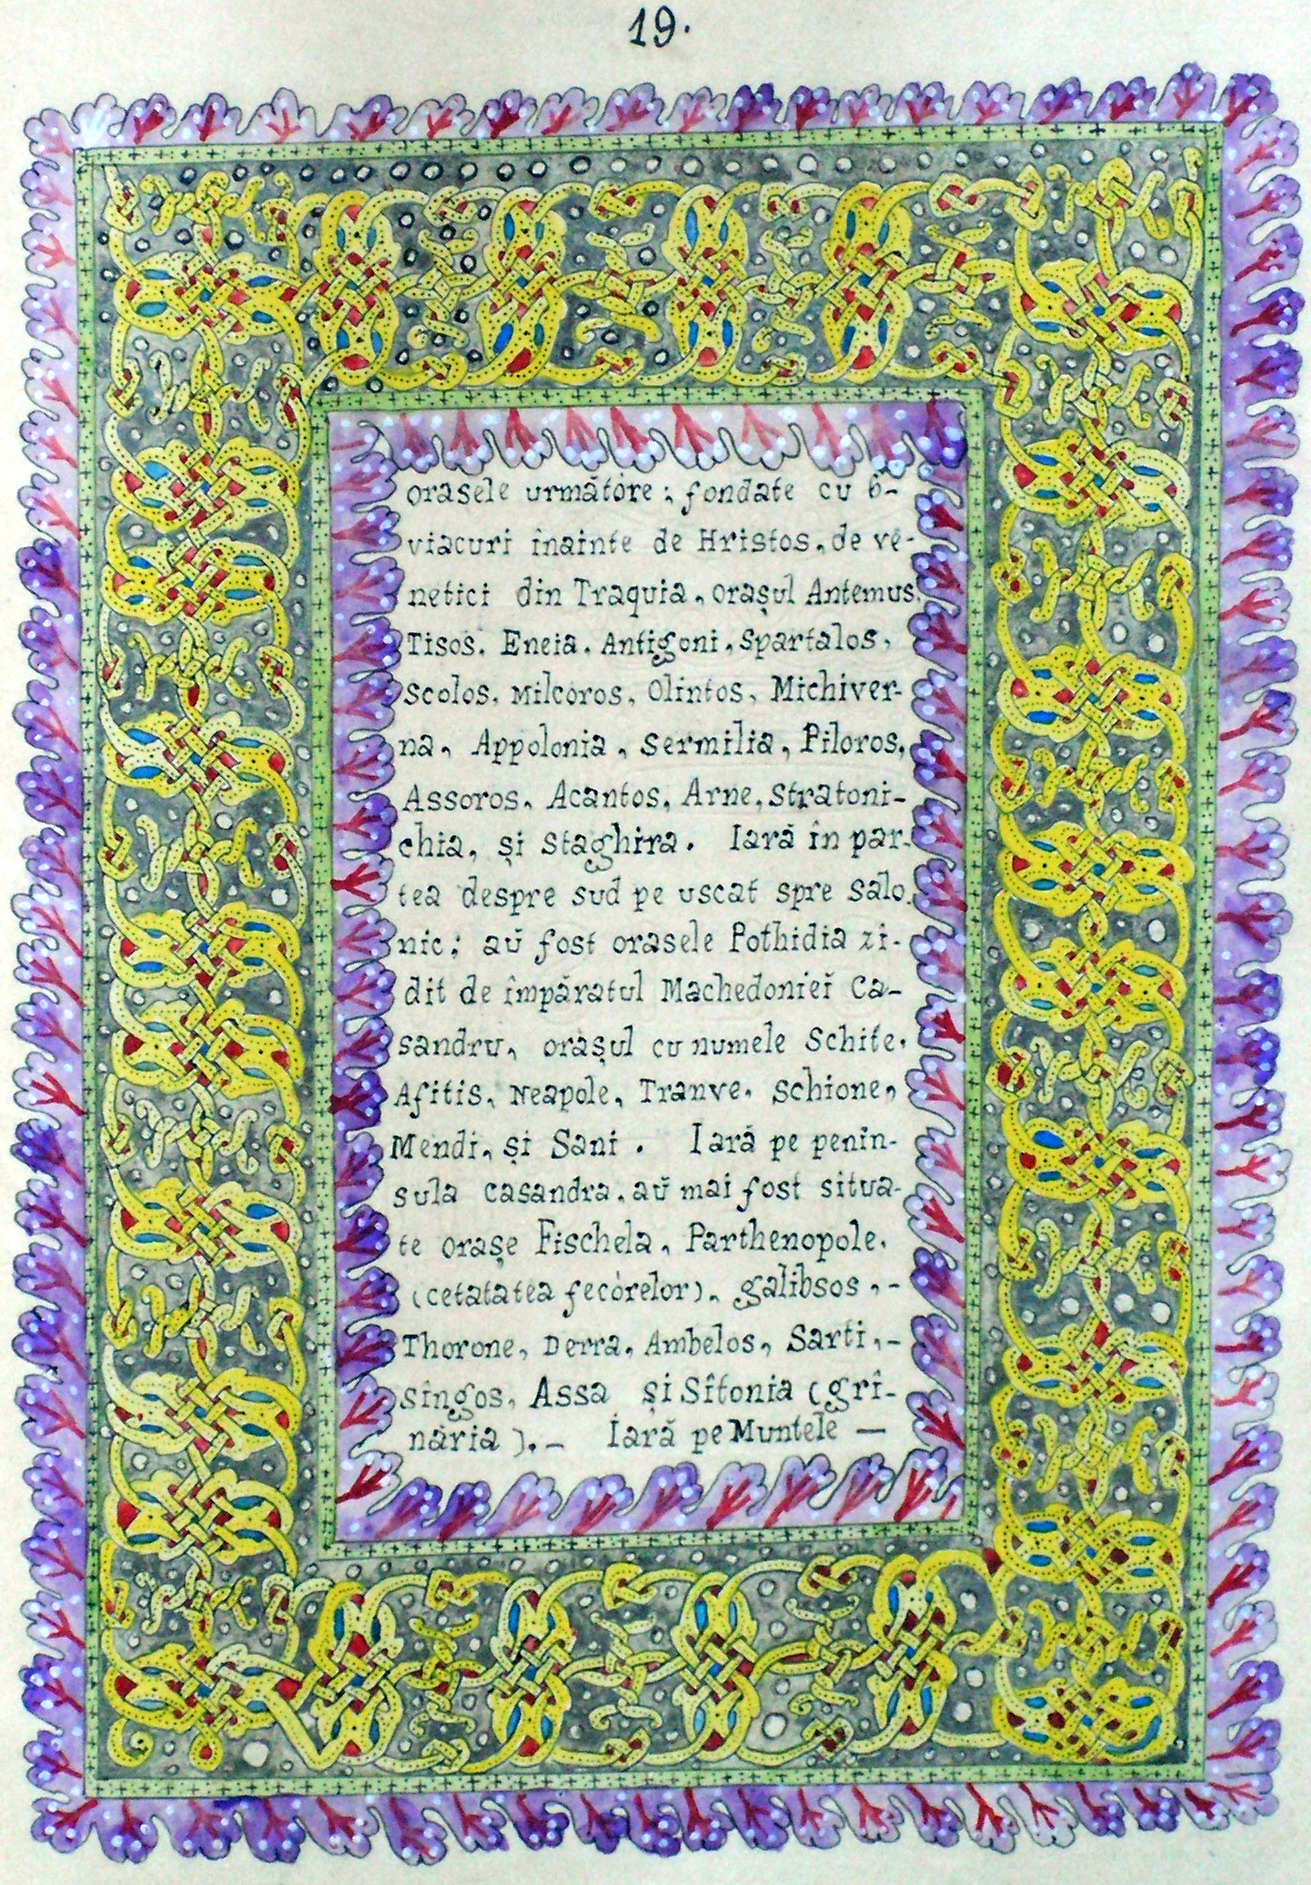 19.
orasele urmãtore ; fondate cu 6-
viacuri înainte de Hristos, de ve-
netici din Traquia, orașul Antemus,
Tisos, Eneia, Antigoni, Spartalos,
Scolos, Milcoros, Olintos, Michiver-
na, Appolonia, Sermilia, Piloros,
Assoros, Acantos, Arne, Stratoni-
chia, și Staghira. Iarã în par-
tea despre sud pe uscat spre Salo-
nic; aŭ fost orasele Pothidia zi-
dit de împãratul Machedonieĭ Ca-
sandru, orașul cu numele Schite,
Afitis, Neapole, Tranve, Schione,
Mendi, și Sani. Iarã pe penin-
sula Casandra, aŭ mai fost situa-
te orașe Fischela, Parthenopole,
(cetatatea fecòrelor), galibsos, -
Thorone, Derra, Ambelos, Sarti, -
singos, Assa și Sitonia (gri-
nãria ). - Iarã pe Muntele —